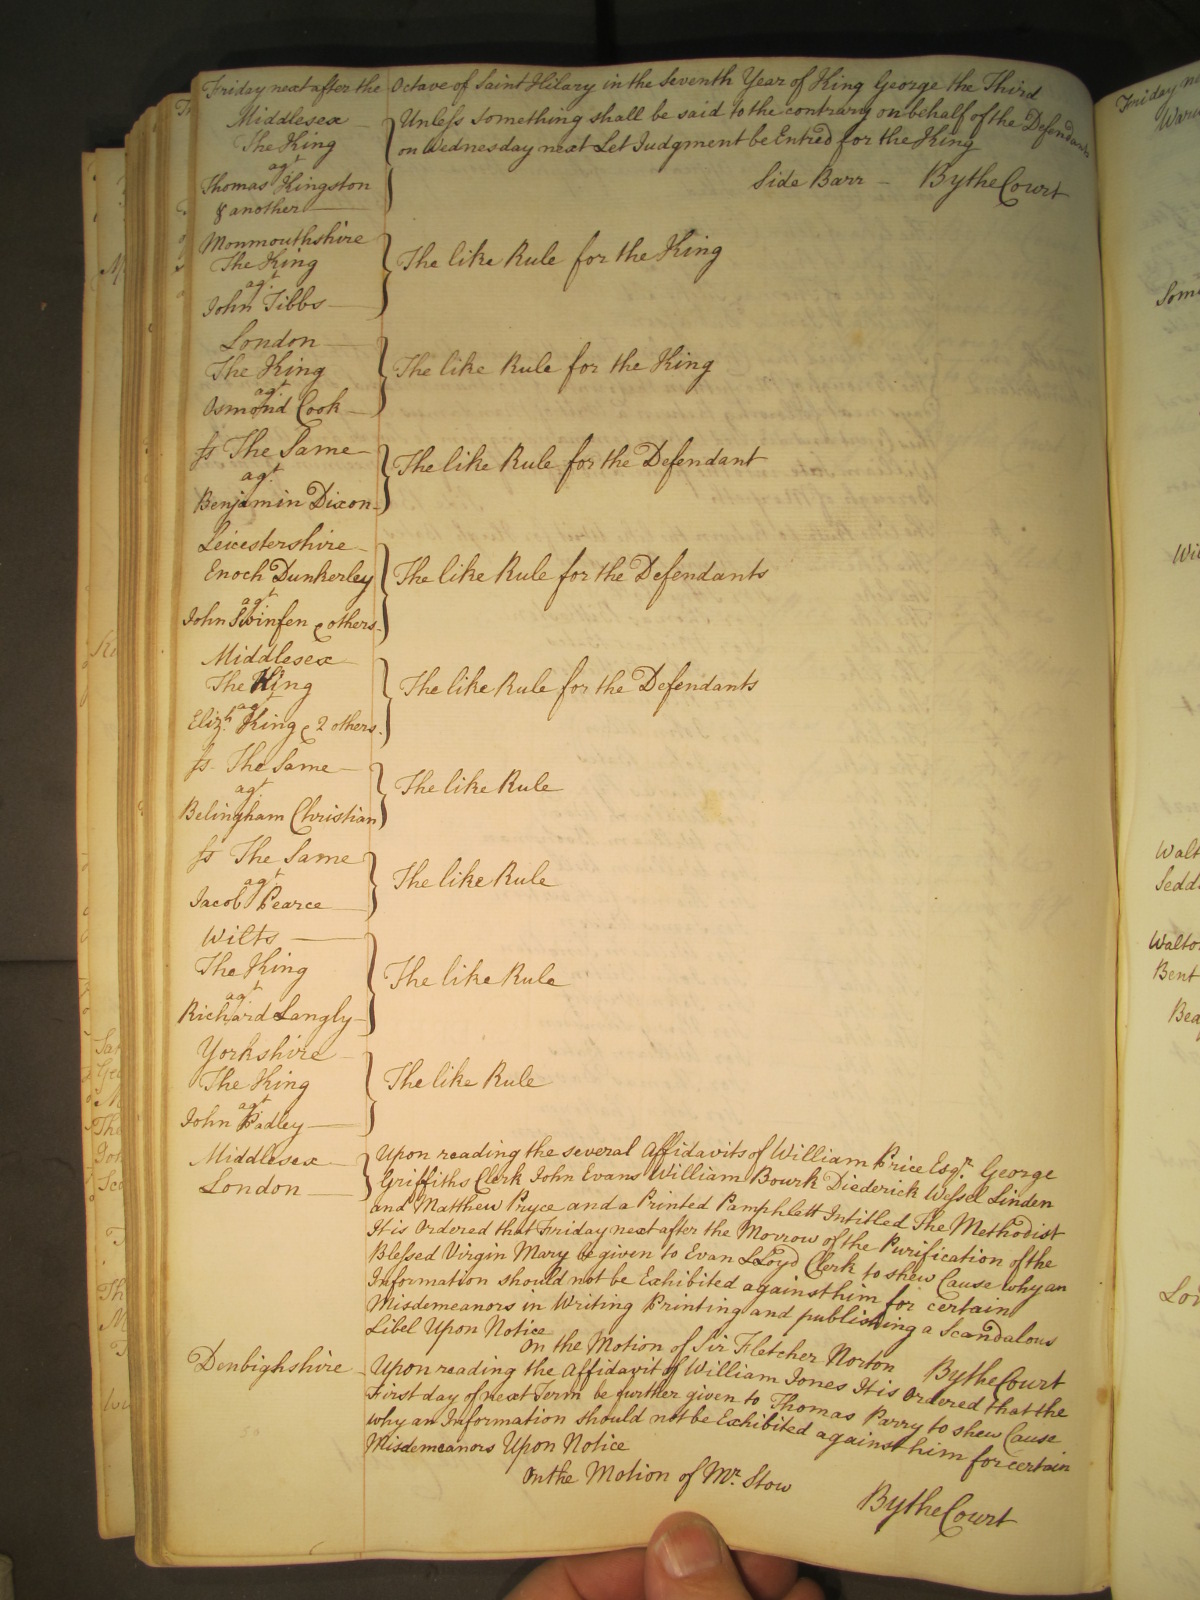 Friday next after the Octave of Saint Hilary in the Seventh Year of King George the Third
Middlesex
The King
agt
Thomas Kingston
& another
Unless Something shall be said to the contrary on behalf of the Defendants
on Wednesday next Let Judgment be Entred for the King
Side Barr - By the Court
Monmouthshire
The King
agt
John Tibbs
The like Rule for the King
London
The King
agt
Osmond Cook
The like Rule for the King
Js The Same
agt
Benjamin Dixon
The like Rule for the Defendant
Leicestershire
Enoch Dunkerley
agt
John Swinfen & others
The like Rule for the Defendants
Middlesex
The King
agt
Elizh King & 2 others
The like Rule for the Defendants
Js The Same
agt
Belingham Christian
The like Rule
Js The Same
agt
Jacob Pearce
The like Rule
Wilts
The King
agt
Richard Langly
The like Rule
Yorkshire
The King
agt
John Padley
The like Rule
Middlesex
London
Upon reading the several Affidavits of William Price Esqr. George
Griffiths Clerk John Evans William Bourk Diederick Wessel Linden
and Matthew Pryce and a Printed Pamphlett Intitled The Methodist
It is Ordered that Friday next after the Morrow of the Purification of the
Blessed Virgin Mary be given to Evan LLoyd Clerk to shew Cause why an
Information should not be Exhibited against him for certain
Misdemeanors in Writing Printing and publishing a Scandalous
Libel Upon Notice
On the Motion of Sir Fletcher Norton By the Court
Denbighshire
Upon reading the Affidavit of William Jones It is Ordered that the
First day of next Term be further given to Thomas Parry to shew Cause
why an Information should not be Exhibited against him for certain
Misdemeanors Upon Notice
On the Motion of Mr. Stow
By the Court
Friday
Walt
Sedd
Walto
Bent